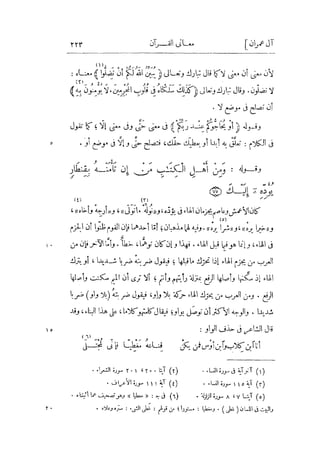 آل عمران ] معانى القرآن ٢٢٣
لأن معنى أن معنى لا كما قال تبارك وتعالى ﴿ يُبَيِّنُ اللهُ لَكُمْ أَنْ تَضِلُّوا (١) ﴾ معناه :
لا تضلون . وقال تبارك وتعالى ﴿ كَذَلِكَ سَلَكْنَاهُ فِى قُلُوبِ الْمُجْرِمِينَ . لَا يُؤْمِنُونَ بِهِ (٢) ﴾
أن تصلح فى موضع لا .
وقـوله ﴿ أو يُحَاجُّوكُمْ عِنْدَ رَبِّكُمْ ﴾ فى معنى حَتَّى وفى معنى إلّا ؛ كما تقول
فى الكلام : تعلّق به أبدا أو يعطيك حقّك ، فتصلح حتى وإلّا فى موضع أو . ٥
وقـوله : وَمِنْ أَهْلِ الْكِتَـٰبِ مَنْ إِن تَأْمَنْهُ بِقِنطَارٍ
يُؤَدِّهِ إِلَيْكَ ﴿٧٥﴾
كان الأعمش وعاصم يجزمان الهاء فى يؤدّه ، و « نولّه ما تولى (٣) » ، و « أرجه وأخاه (٤) » ،
و « خيرا يره » ، و « شرا يره (٥) » . وفيه لهما مذهبان ؛ أمّا أحدهما فإن القوم ظنّوا أن الجزم
فى الهاء ، وإنما هو فيما قبل الهاء . فهذا وإن كان توهّما ، خطأ . وأما الآخر فإن من ١٠
العرب من يجزم الهاء إذا تحرّك ما قبلها ؛ فيقول ضربتهْ ضربا شديدا ، أو يترك
الهاء إذ سكنها وأصلها الرفع بمنزلة رأيتهم وأنتم ؛ ألا ترى أن الميم سكنت وأصلها
الرفع . ومن العرب من يحرّك الهاء حركة بلا واو ، فيقول ضربتهُ ( بلا واو ) ضربا
شديدا . والوجه الأكثر أن توصل بواو ؛ فيقال كلمتهو كلاما ، على هذا البناء ، وقد
قال الشاعر فى حذف الواو : ١٥
أنا ابن كلاب وابن أوس فمن يكن قناعه مَغْطِيًّا فإنى لَمُجْتَلَى (٦)
(١) آخر آية فى سورة النساء . (٢) آيتا ٢٠٠ ، ٢٠١ سورة الشعراء .
(٣) آية ١١٥ سورة النساء . (٤) آية ١١١ سورة الأعراف .
(٥) آيتا ٧ ، ٨ سورة الزلزلة .
والبيت فى اللسان ( غطى ) . ومغطيا : مستورا ؛ من قولهم : غطى الشىء : ستره وعلاه . ٢٠